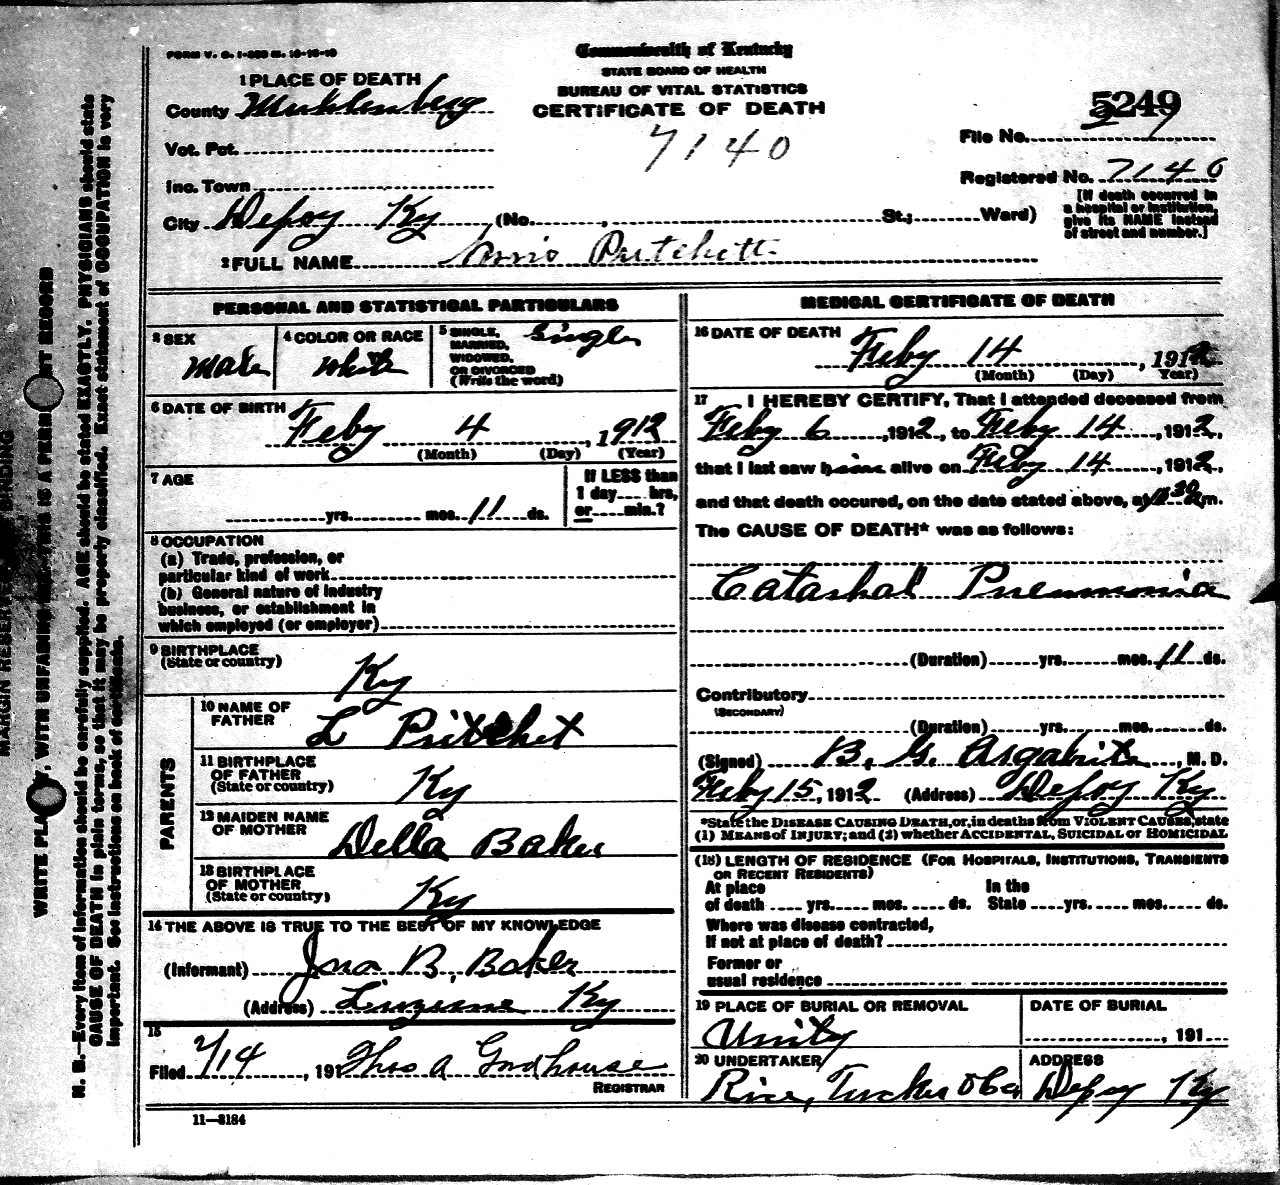 FORM V. S. 1-
Commonwealth of Kentucky
STATE BOARD OF HEALTH
BUREAU OF VITAL STATISTICS
CERTIFICATE OF DEATH
1 PLACE OF DEATH
County Muhlenberg
Vot. Pct.
Inc. Town
City Depoy Ky (No. , St.; Ward)
7140
File No. 5249
Registered No. 7140
[If death occurred in
a hospital or institution,
give its NAME instead
of street and number.]
2 FULL NAME Norris Pritchett
PERSONAL AND STATISTICAL PARTICULARS
3 SEX
male
4 COLOR OR RACE
white
5 SINGLE,
MARRIED,
WIDOWED,
OR DIVORCED
(Write the word)
Single
6 DATE OF BIRTH
Feby 4, 1912
(Month) (Day) (Year)
7 AGE
yrs. mos. 11 ds.
If LESS than
1 day hrs,
or min.?
8 OCCUPATION
(a) Trade, profession, or
particular kind of work
(b) General nature of industry
business, or establishment in
which employed (or employer)
9 BIRTHPLACE
(State or country)
Ky
PARENTS
10 NAME OF
FATHER
L Pritchet
11 BIRTHPLACE
OF FATHER
(State or country)
Ky
12 MAIDEN NAME
OF MOTHER
Della Baker
13 BIRTHPLACE
OF MOTHER
(State or country)
Ky
14 THE ABOVE IS TRUE TO THE BEST OF MY KNOWLEDGE
(Informant) Jno B. Baker
(Address) Luzerne Ky
15
Filed 2/14, 191 Thos A
REGISTRAR
11—3184
MEDICAL CERTIFICATE OF DEATH
16 DATE OF DEATH
Feby 14, 1912
(Month) (Day) (Year)
17 I HEREBY CERTIFY, That I attended deceased from
Feby 6, 1912, to Feby 14, 1912,
that I last saw him alive on Feby 14, 1912,
and that death occured, on the date stated above, at m.
The CAUSE OF DEATH* was as follows:
Catarhal Pneumonia
(Duration) yrs. mos. 11 ds.
Contributory
(SECONDARY)
(Duration) yrs. mos. ds.
(Signed) B. G. Argabrite, M. D.
Feby 15, 1912 (Address) Depoy Ky
*State the DISEASE CAUSING DEATH, or, in deaths from VIOLENT CAUSES, state
(1) MEANS of INJURY; and (2) whether ACCIDENTAL, SUICIDAL or HOMICIDAL
(18) LENGTH OF RESIDENCE (FOR HOSPITALS, INSTITUTIONS, TRANSIENTS
OR RECENT RESIDENTS)
At place
of death yrs. mos. ds.
In the
State yrs. mos. ds.
Where was disease contracted,
If not at place of death?
Former or
usual residence
19 PLACE OF BURIAL OR REMOVAL
Unity
DATE OF BURIAL
, 191
20 UNDERTAKER
Rice, Tucker & Co,
ADDRESS
Depoy Ky
MARGIN RESERVED BINDING
WRITE PLAINLY, WITH UNFADING THIS IS A PERMANENT RECORD
N. B.—Every item of information should be carefully supplied. AGE should be stated EXACTLY. PHYSICIANS should state
CAUSE OF DEATH in plain terms, so that it may be properly classified. Exact statement of OCCUPATION is very
important. See instructions on back of certificate.